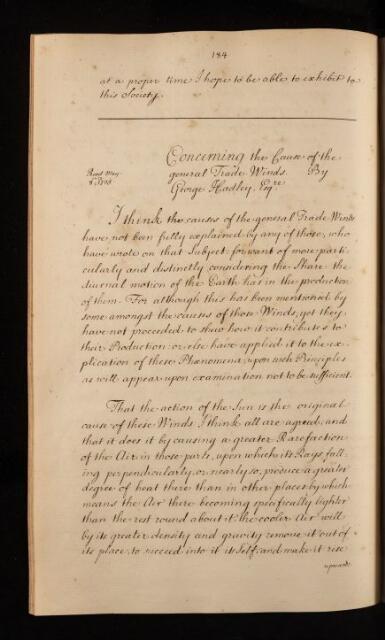 184
at a proper time I hope to be able to exhibit to
this Society.
Concerning the Cause of the
general Trade Winds. By
George Hadley, Esqre
Read May
I think the causes of the general Trade Winds
have not been fully explained by any of those, who
have wrote on that Subject for want of more parti-
cularly and distinctly considering the Share the
diurnal motion of the Earth has in the production
of them. For although this has been mentioned by
some amongst the causes of those Winds, yet they
have not proceeded to shew how it contributes to
their Production: or else have applied it to the ex-
plication of these Phœnomena, upon such Principles
as will appear upon examination not to be sufficient.
That the action of the Sun is the original
cause of these Winds I think all are agreed, and
that it does it by causing a greater Rarefaction
of the Air in those parts, upon which its Rays fall-
ing perpendicularly, or nearly so, produce a greater
degree of heat there than in other places, by which
means the Air there becoming specifically lighter
than the rest round about it, the cooler Air will
by its greater density and gravity remove it out of
its place, to succeed into it its Self, and make it rise
upwards